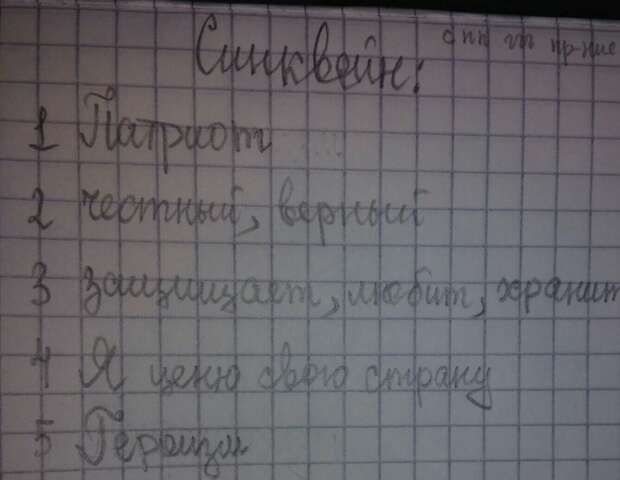 Синквейн:
1 Патриот
2 честный, верный
3 защищает, любит, хранит
4 Я ценю свою страну
5 Героизм